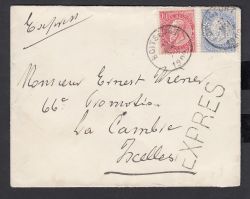 Express
Monsieur Ernest Wiener
66e Promotion
La Cambre
Ixelles
EXPRES